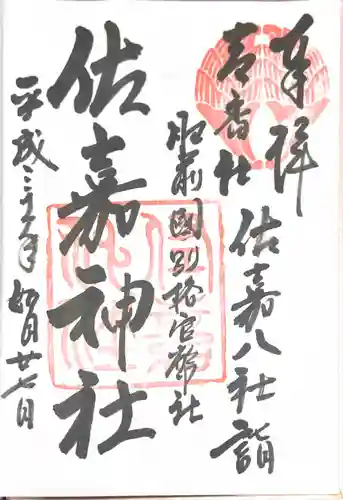 奉拝
壱番社 佐嘉八社詣
肥前國別格官幣社
佐嘉神社
平成 年 如月廿七日